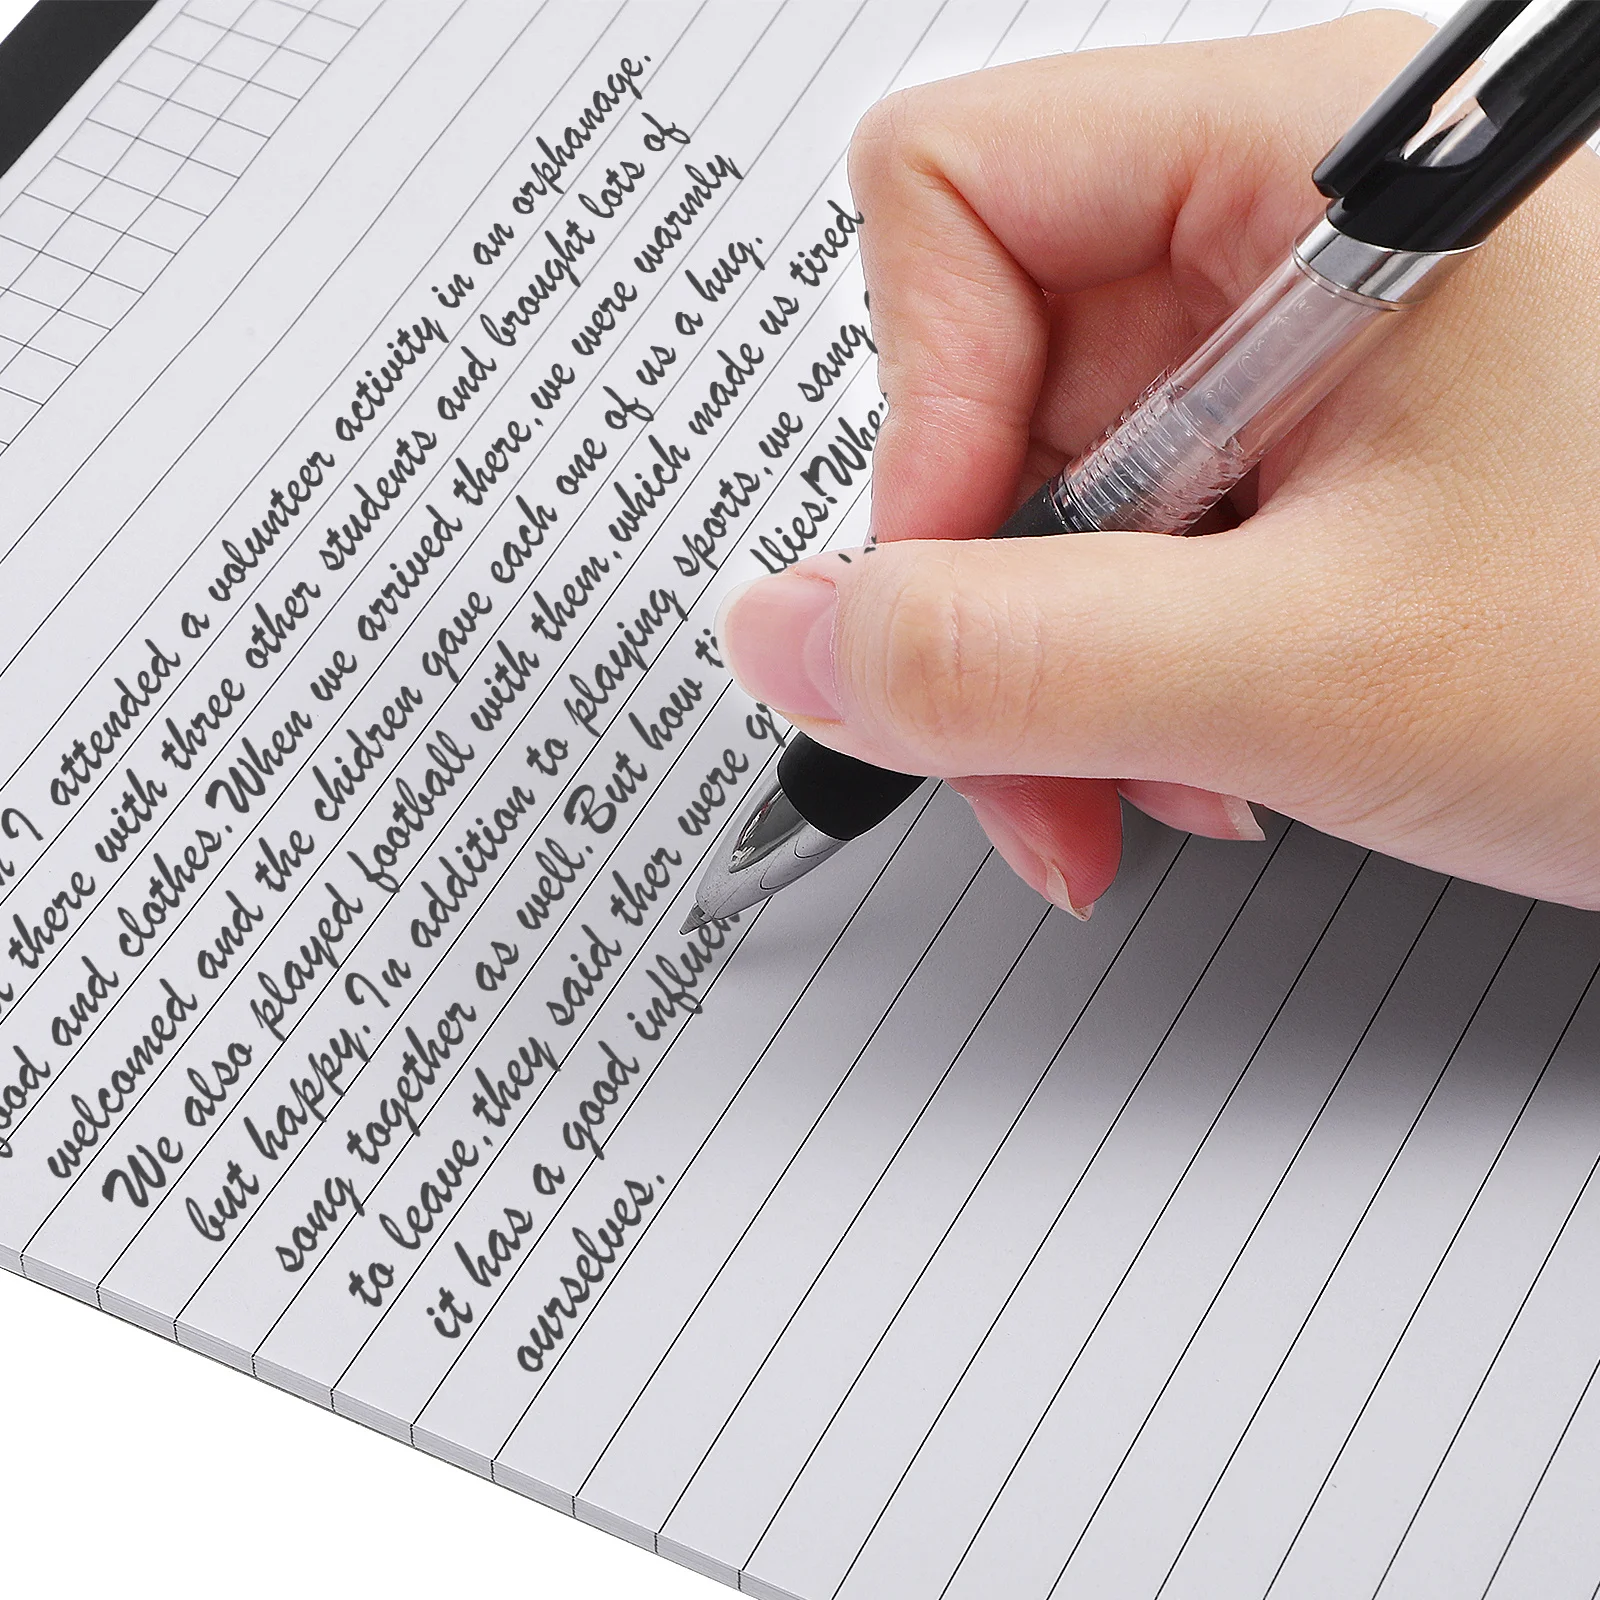 I attended a volunteer activity in an orphanage.
there with three other students and brought lots of
and clothes. When we arrived there, we were warmly
welcomed and the chidren gave each one of us a hug.
We also played football with them, which made us tired
but happy. In addition to playing sports, we sang
song together as well. But how flies! Whe
to leave, they said ther were
it has a good influen
ourselves.